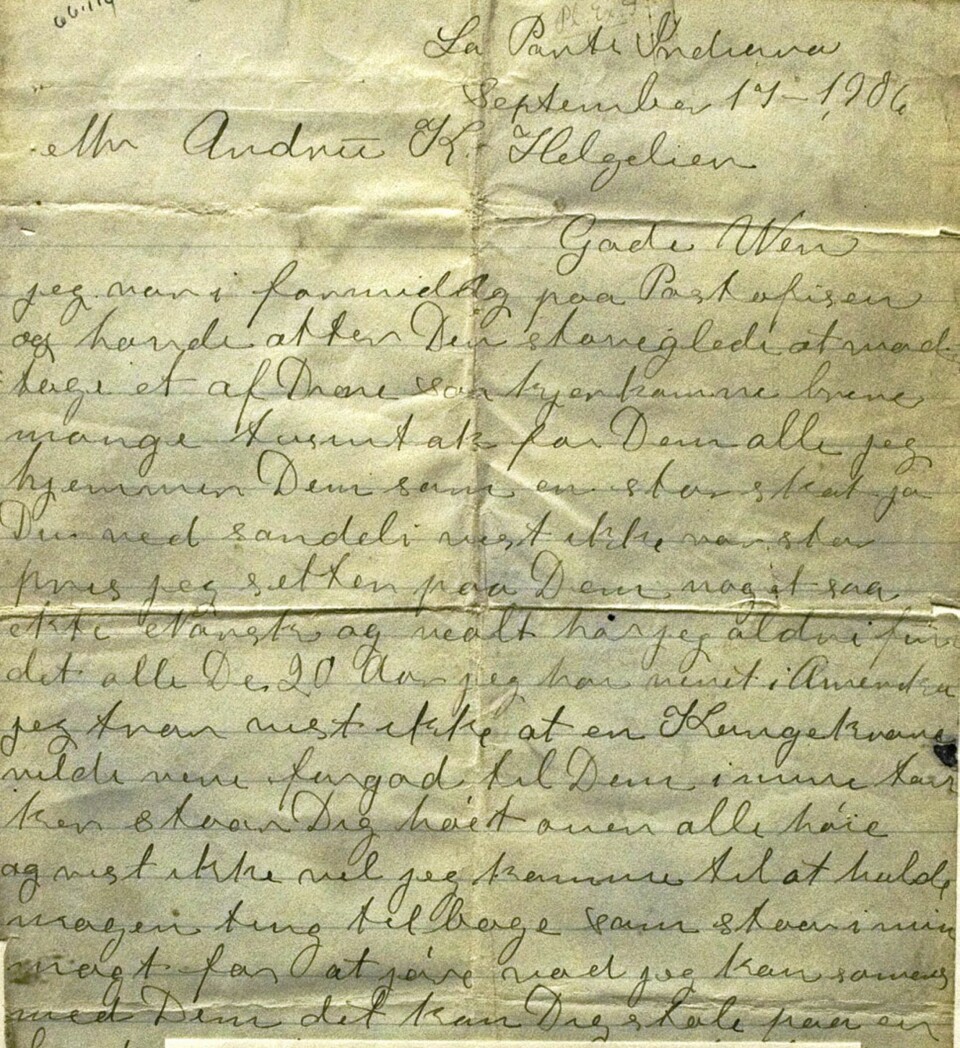 La Porte Indiana
September 17 - 1906
Mr Andrew K. Helgelien
Gode Wen
jeg var i formiddag paa Postofisen
og havde atter Den store glede at mod-
tage et af Dine saa kjerkomne breve
mange tusint ak for Dem alle jeg
hjemmer Dem som en stor skat ja
Du ved sandeli vist ikke vor stor
pris jeg setter paa Dem noget saa
ekte Norsk og realt har jeg aldri før
det alle De 20 Aar jeg har veret i Amerika
jeg tror vist ikke at en Kongekvone
vilde vere for god til Dem i mine tan
ker staar Dig høiet over alle høie
og vist ikke vil jeg komme til at holde
nogen ting tilbage som staar i min
magt for at jøre vad jeg kan
med Dem det kan Dig stole paa en